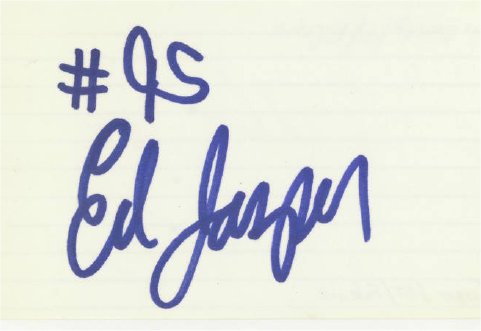 #95
Ed Jasper